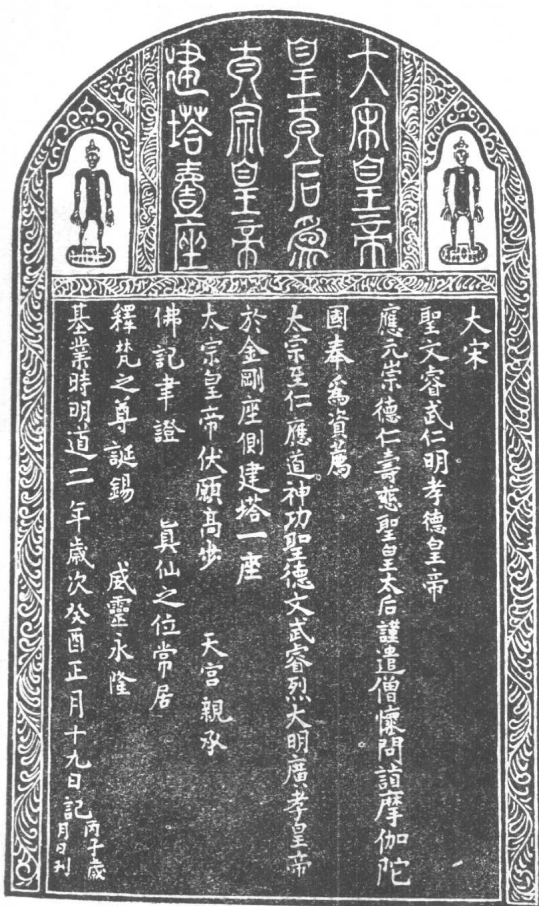 大宋皇帝
皇太后爲
太宗皇帝
建塔壹座
大宋
聖文睿武仁明孝德皇帝
應元崇德仁壽慈聖皇太后謹遣僧懷問詣摩伽陀
國奉爲資薦
太宗至仁應道神功聖德文武睿烈大明廣孝皇帝
於金剛座側建塔一座
太宗皇帝伏願高步 天宮親承
佛記聿證 眞仙之位常居
釋梵之尊誕錫 威靈永隆
基業時明道二年歲次癸酉正月十九日記
丙子歲
月日刊